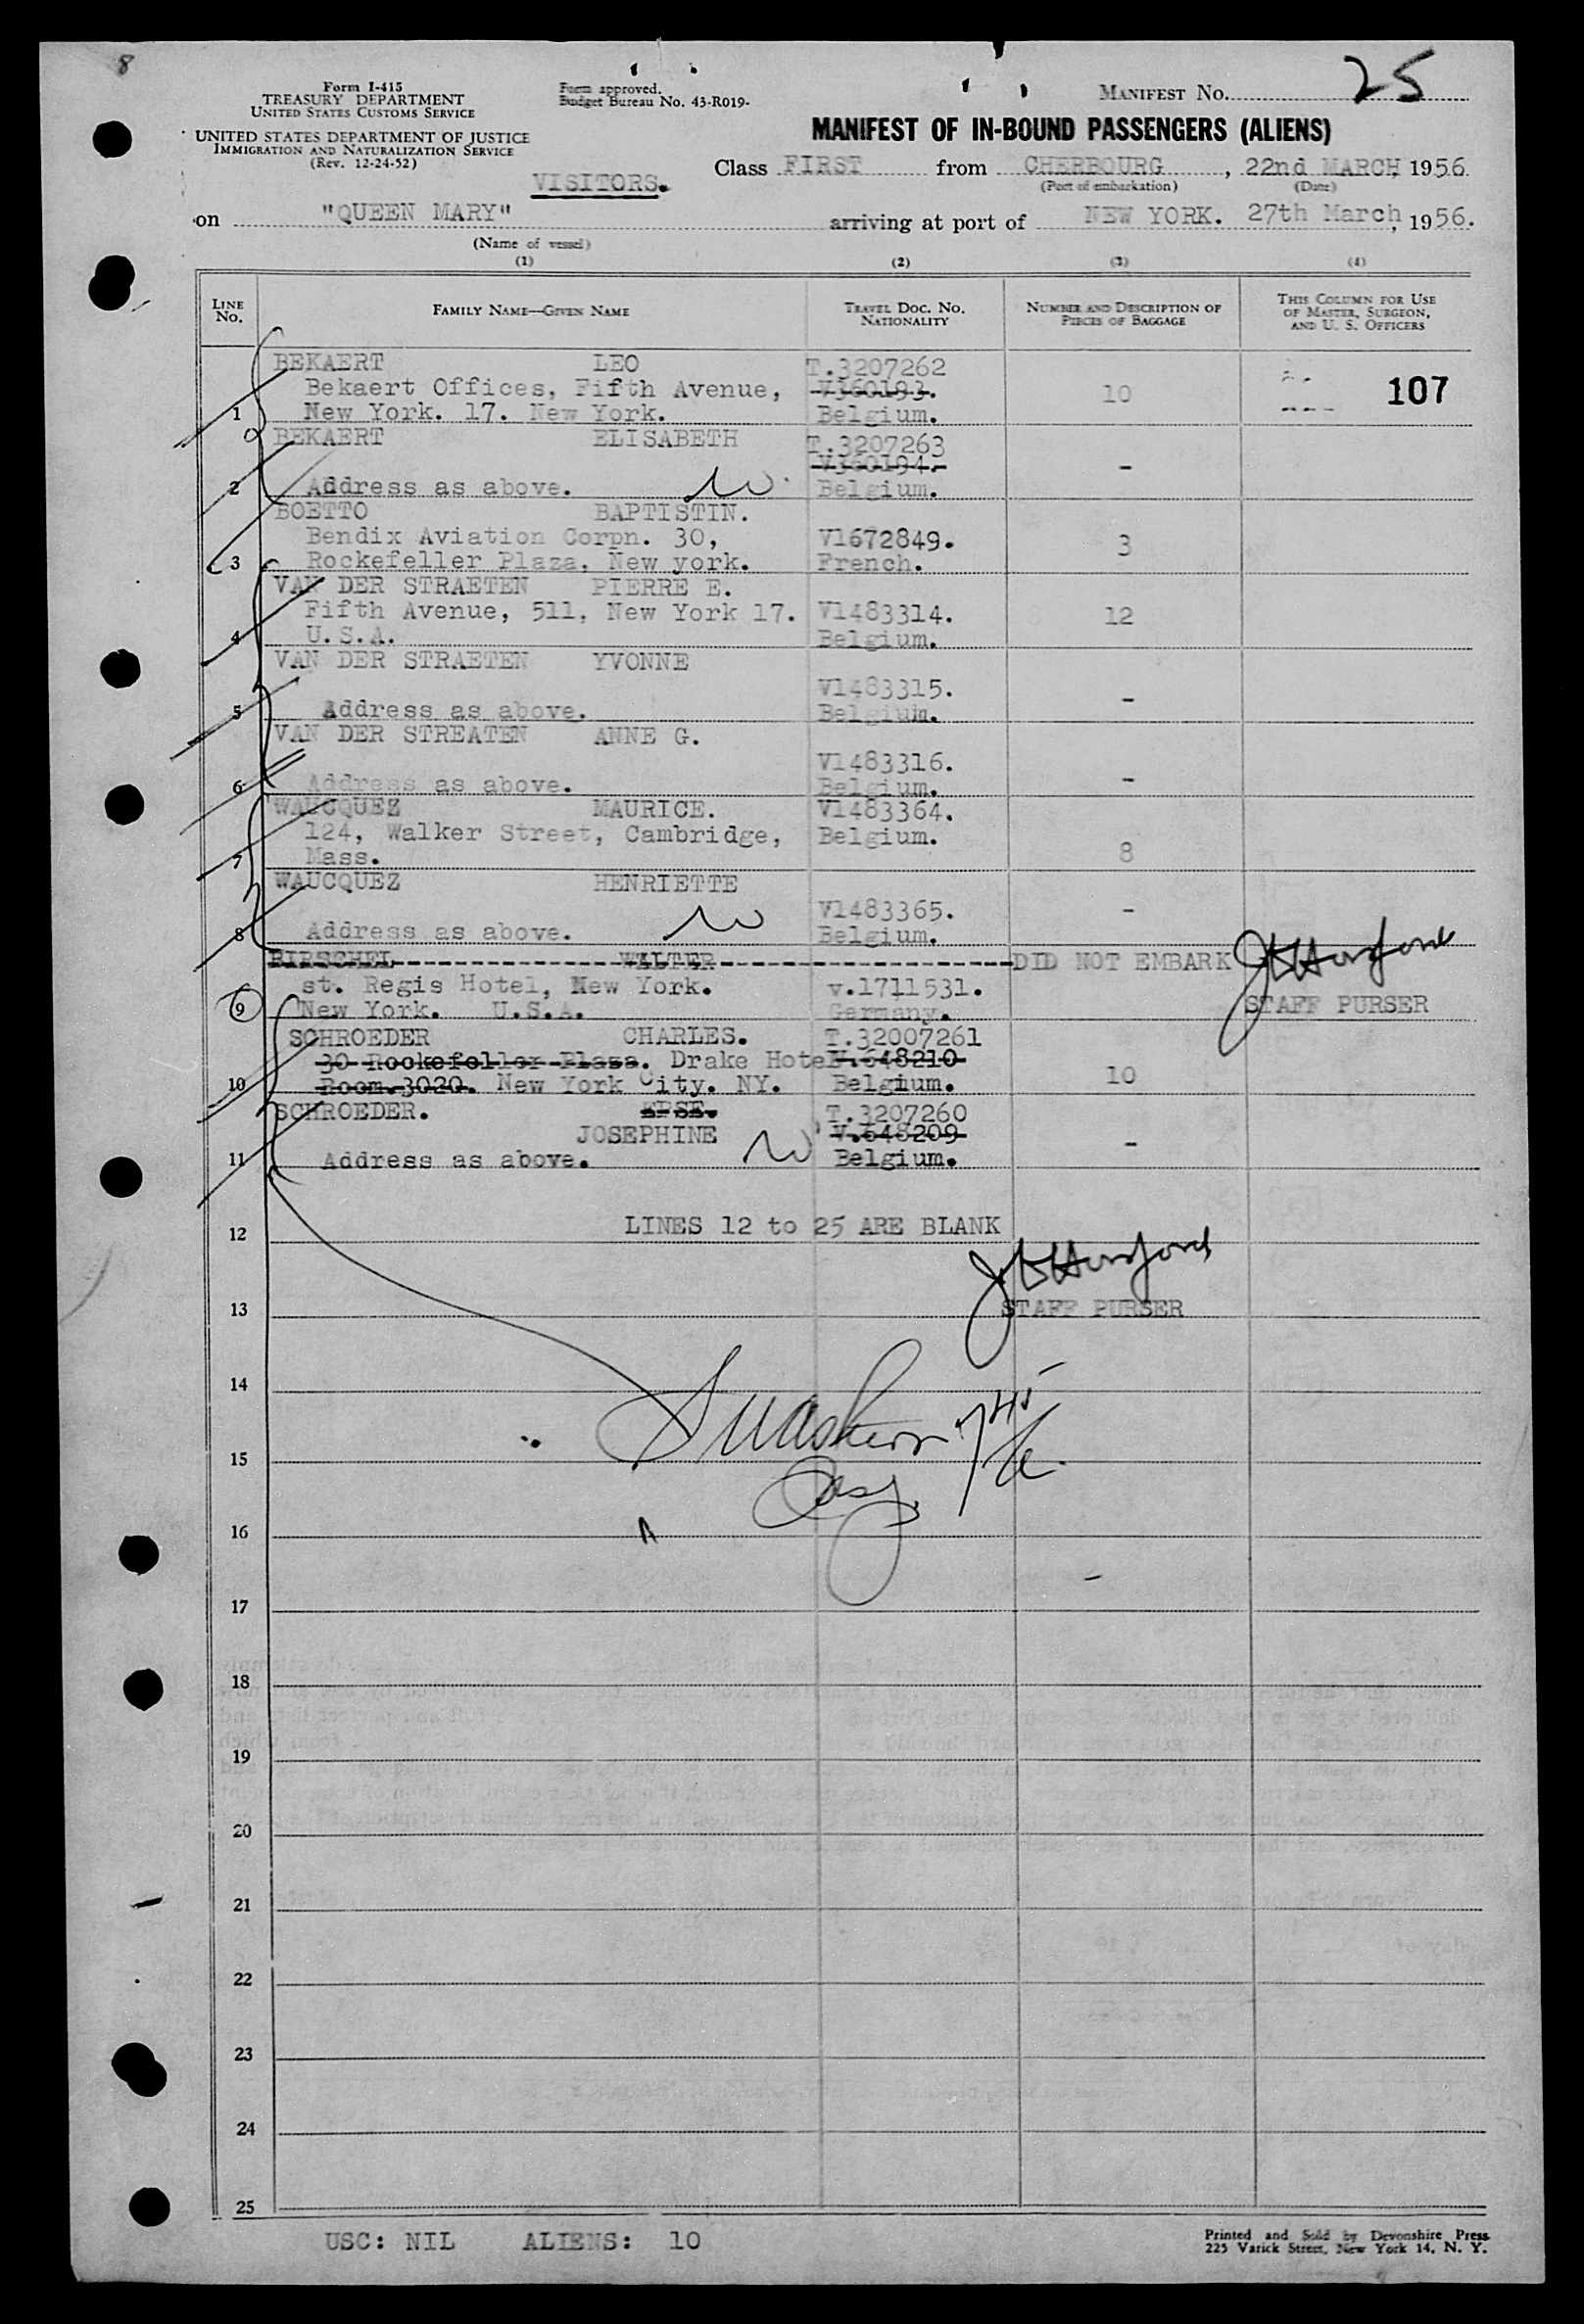 8
Form I-415
TREASURY DEPARTMENT
UNITED STATES CUSTOMS SERVICE
UNITED STATES DEPARTMENT OF JUSTICE
IMMIGRATION AND NATURALIZATION SERVICE
(Rev. 12-24-52)
Form approved.
Budget Bureau No. 43-R019-
MANIFEST NO. 25
MANIFEST OF IN-BOUND PASSENGERS (ALIENS)
VISITORS.
Class FIRST from CHERBOURG, 22nd MARCH 1956
(Port of embarkation) (Date)
on "QUEEN MARY" arriving at port of NEW YORK. 27th March, 1956.
(Name of vessel)
(1) (2) (3) (4)
LINE No. FAMILY NAME—GIVEN NAME TRAVEL DOC. NO. NATIONALITY NUMBER AND DESCRIPTION OF PIECES OF BAGGAGE THIS COLUMN FOR USE OF MASTER, SURGEON, AND U. S. OFFICERS
BEKAERT LEO T.3207262
Bekaert Offices, Fifth Avenue, V360193. 10 107
1 New York. 17. New York. Belgium.
BEKAERT ELISABETH T.3207263
V360194.- -
2 Address as above. Belgium.
BOETTO BAPTISTIN.
Bendix Aviation Corpn. 30, V1672849. 3
3 Rockefeller Plaza, New york. French.
VAN DER STRAETEN PIERRE E.
Fifth Avenue, 511, New York 17. V1483314. 12
4 U.S.A. Belgium.
VAN DER STRAETEN YVONNE
V1483315. -
5 Address as above. Belgium.
VAN DER STREATEN ANNE G.
V1483316. -
6 Address as above. Belgium.
WAUCQUEZ MAURICE. V1483364.
124, Walker Street, Cambridge, Belgium.
7 Mass. 8
WAUCQUEZ HENRIETTE
V1483365. -
8 Address as above. Belgium.
BIRSCHEL WALTER DID NOT EMBARK
st. Regis Hotel, New York. v.1711531.
9 New York. U.S.A. Germany. STAFF PURSER
SCHROEDER CHARLES. T.32007261
30 Rockefeller Plaza. Drake Hotel V.648210
10 Room.3020. New York City. NY. Belgium. 10
SCHROEDER. EPSE. T.3207260
JOSEPHINE V.648209 -
11 Address as above. Belgium.
12 LINES 12 to 25 ARE BLANK
13 STAFF PURSER
14
15
16
17
18
19
20
21
22
23
24
25
USC: NIL ALIENS: 10
Printed and Sold by Devonshire Press
225 Varick Street, New York 14, N. Y.